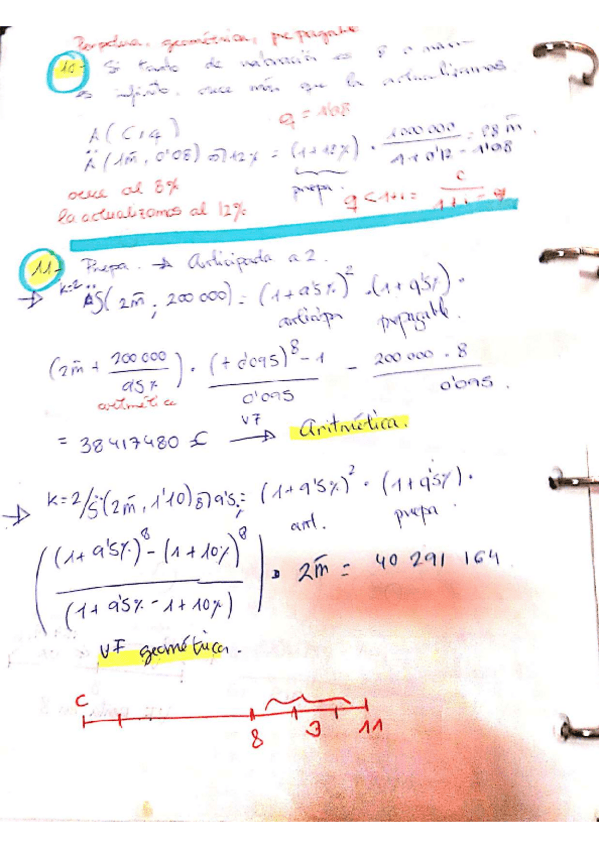 Perpetua, geométrica, prepagable
10- Si tanto de valoración es 8 o
es infinito. crece más que la actualizamos
q = 1'08
A(C, q)
Ä(1m̄, 0'08) ∞⌉12% = (1+12%) · 1000 000 / 1+0'12-1'08 = 28 m̄.
prepa.
crece al 8%
la actualizamos al 12%.
q < 1+i = C / 1+i - q
11- Prepa. → Anticipada a 2.
→ k=2 / AS̈(2m̄, 200 000) = (1+9'5%)² · (1+9'5%) ·
anticipa prepagable.
(2m̄ + 200 000 / 9'5%) · (1+0'095)⁸ - 1 / 0'095 - 200 000 · 8 / 0'095.
aritmética
= 38417480 € VF → Aritmética.
→ k=2/S̈(2m̄, 1'10)8⌉9'5% = (1+9'5%)² · (1+9'5%) ·
ant. prepa.
((1+9'5%)⁸ - (1+10%)⁸ / (1+9'5% - 1+10%)) · 2m̄ = 40 291 164.
VF geométrica.
C
8 3 11